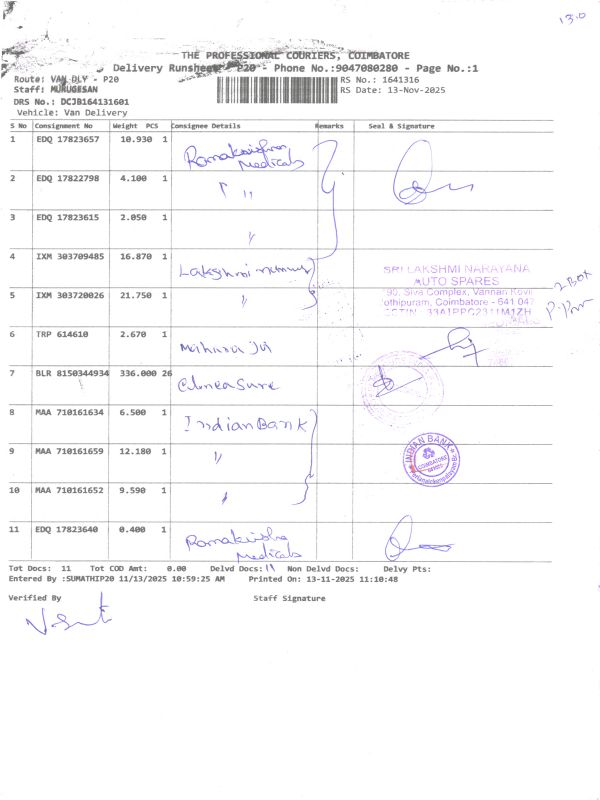 13.0
THE PROFESSIONAL COURIERS, COIMBATORE
Delivery Runsheet - P20 - Phone No.:9047080280 - Page No.:1
Route: VAN DLY - P20
RS No.: 1641316
Staff: MURUGESAN
RS Date: 13-Nov-2025
DRS No.: DCJB164131601
Vehicle: Van Delivery
S No Consignment No Weight PCS Consignee Details Remarks Seal & Signature
1 EDQ 17823657 10.930 1 Ramakrishna Medicals
2 EDQ 17822798 4.100 1 " "
3 EDQ 17823615 2.050 1 "
4 IXM 303709485 16.870 1 Lakshmi
SRI LAKSHMI NARAYANA
AUTO SPARES
2 BOX
5 IXM 303720026 21.750 1 "
90, Siva Complex, Vannan Kovil
othipuram, Coimbatore - 641 047
GSTIN: 33AIPPC2311M1ZH
6 TRP 614610 2.670 1
7 BLR 8150344934 336.000 26
8 MAA 710161634 6.500 1 Indian Bank
9 MAA 710161659 12.180 1 "
INDIAN BANK
COIMBATORE
10 MAA 710161652 9.590 1 "
11 EDQ 17823640 0.400 1 Ramakrishna Medicals
Tot Docs: 11 Tot COD Amt: 0.00 Delvd Docs: 11 Non Delvd Docs: Delvy Pts:
Entered By :SUMATHIP20 11/13/2025 10:59:25 AM Printed On: 13-11-2025 11:10:48
Verified By Staff Signature